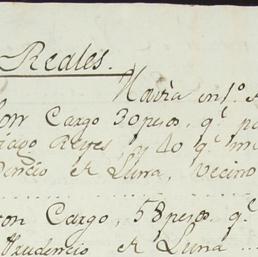 Reales.
Havia en 1.º
Son Cargo 30 pesos, q.e
Reyes, y 40 q.e
dencio de Luna, Vecino
on Cargo, 58 pesos, q.e
Prudencio de Luna